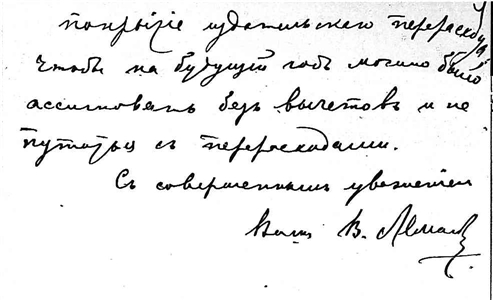 покрытіе издательскаго перерасхода
чтобы на будущій годъ можно было
ассигновать безъ вычетовъ и не
путаться съ перерасходами.
Съ совершеннымъ уваженіем
Ваш В.